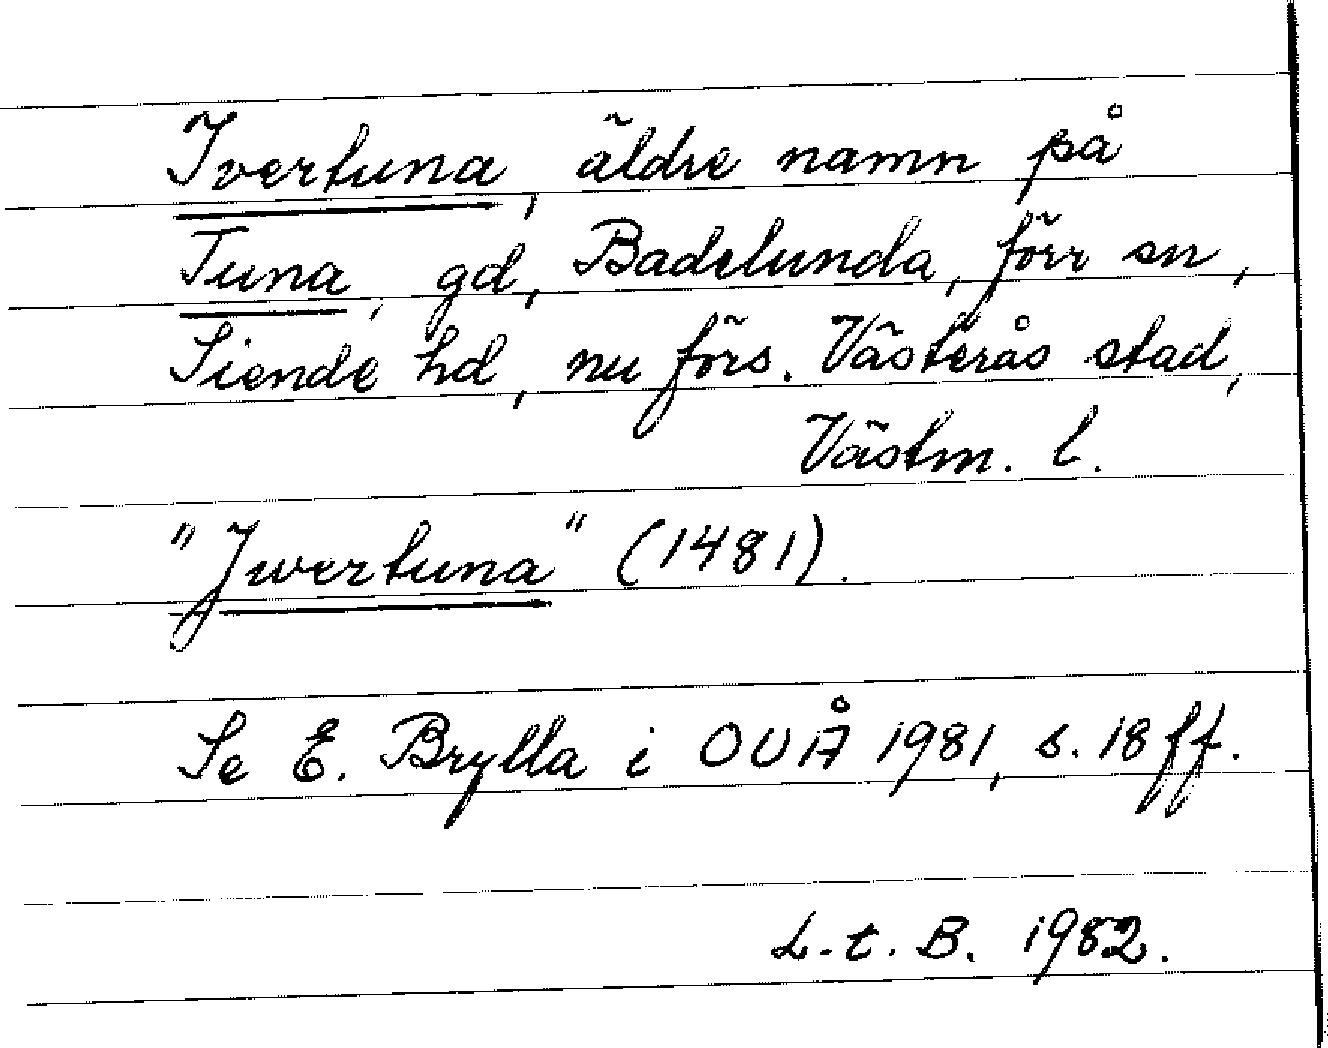 Ivertuna, äldre namn på
Tuna, gd, Badelunda, förr sn,
Siende hd, nu förs. Västerås stad,
Västm. l.
"Jwertuna" (1481).
Se E. Brylla i OUÅ 1981, s. 18 ff.
L. t. B. 1982.